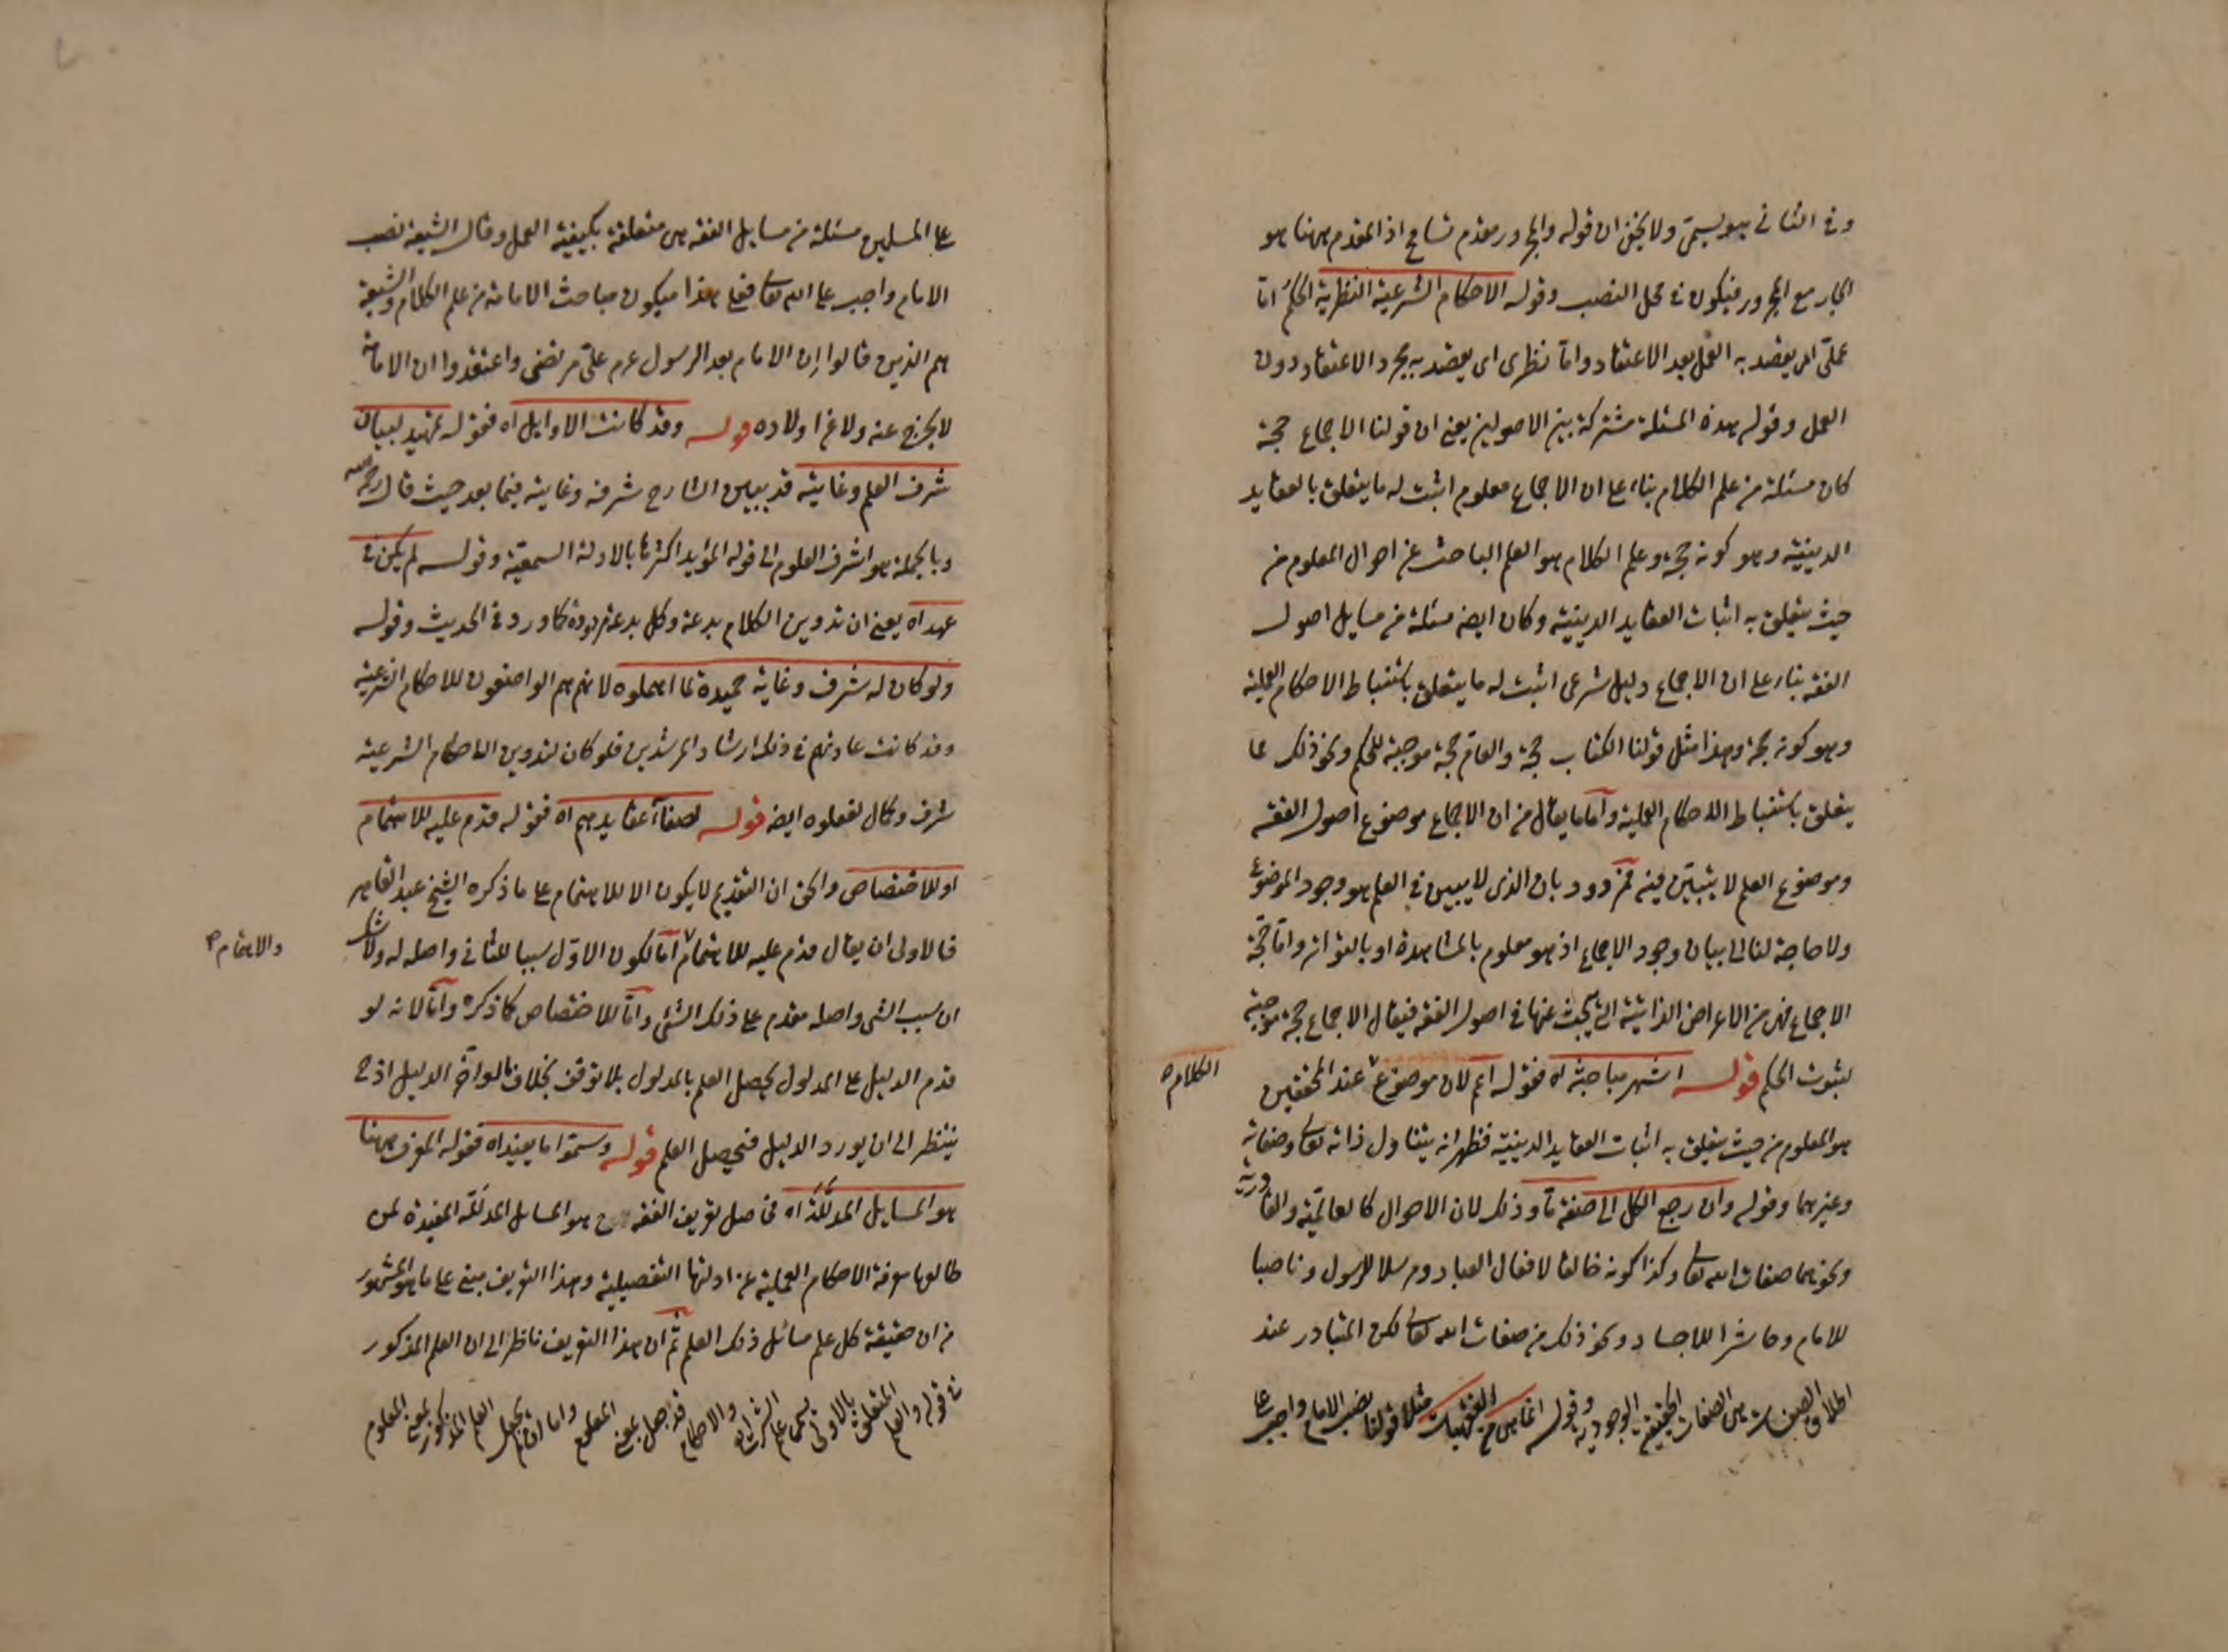 وفي الثاني هو يسمى ولا يخفى ان قوله والمجرور مقدم تسامح اذ المقدم ههنا هو
الجار مع المجرور فيكون في محل النصب وقوله الاحكام الشرعية النظرية الحكم اما
عملى اى يقصد به العمل بعد الاعتقاد واما نظرى اى يقصد به مجرد الاعتقاد دون
العمل وقوله هذه المسئلة مشتركة بين الاصولين يعنى ان قولنا الاجماع حجة
كان مسئلة من علم الكلام بناء على ان الاجماع معلوم اثبت له ما يتعلق بالعقايد
الدينية وهو كونه حجة وعلم الكلام هو العلم الباحث عن احوال المعلوم من
حيث يتعلق به اثبات العقايد الدينية وكان ايضه مسئلة من مسايل اصول
الفقه بناء على ان الاجماع دليل شرعى اثبت له ما يتعلق باستنباط الاحكام العملية
وهو كونه حجة وهذا مثل قولنا الكتاب حجة والعام حجة موجبة للحكم ونحو ذلك مما
يتعلق باستنباط الاحكام العملية واما ما يقال من ان الاجماع موضوع اصول الفقه
وموضوع العلم لا يتبين فيه فمردود بان الذى لا يبين في العلم هو وجود الموضوع
ولا حاجة لنا الى بيان وجود الاجماع اذ هو معلوم بالمشاهدة او بالتواتر واما حجة
الاجماع فهى من الاعراض الذاتية التى يبحث عنها في اصول الفقه فيقال الاجماع حجة موجبة
لثبوت الحكم قوله اشهر مباحثه اه فقوله اعم لان موضوع عند المحققين
الكلام
هو المعلوم من حيث يتعلق به اثبات العقايد الدينية فظهر انه يتناول ذاته تعالى وصفاته
وغيرهما وقوله وان رجع الكل الى صفة ما وذلك لان الاحوال كالعالمية والقادرية
ونحوهما صفات الله تعالى وكذا كونه خالقا لافعال العباد ومرسلا للرسول وناصبا
للامام وحاشرا للاجساد ونحو ذلك من صفات الله تعالى لكن المتبادر عند
اطلاق الصفات هى الصفات الحقيقية الوجودية وقوله انما هى من الفقهيات مثلا قولنا نصب الامام واجب على
على المسلمين مسئلة من مسايل الفقه هى متعلقة بكيفية العمل وقال الشيعة نصب
الامام واجب على الله تعالى فعلى هذا فيكون مباحث الامامة من علم الكلام والشيعة
هم الذين قالوا ان الامام بعد الرسول عم على مرتضى واعتقدوا ان الامامة
لا يخرج عنه ولا عن اولاده قوله وقد كانت الاوايل اه فقوله تمهيد لبيان
شرف العلم وغايته قد يبين الشارح شرفه وغايته فيما بعد حيث قال رحمه الله
وبالجملة هو اشرف العلوم الى قوله المؤيد اكثرها بالادلة السمعية وقوله لم يكن في
عهد اه يعنى ان تدوين الكلام بدعة وكل بدعة مردودة كما ورد في الحديث وقوله
ولو كان له شرف وغاية حميدة لما اهملوه لانهم هم الواضعون للاحكام الشرعية
وقد كانت عادتهم في ذلك ارشاد المرشدين فلو كان لتدوين الاحكام الشرعية
شرف وكمال لفعلوه ايضه قوله لصفاء عقايدهم اه فقوله قدم عليه للاهتمام
او للاختصاص والحق ان التقديم لا يكون الا للاهتمام على ما ذكره الشيخ عبد القاهر
فالاولى ان يقال قدم عليه للاهتمام اما لكون الاول سببا للثانى واصله له ولا شك
والاهتمام
ان سبب الشى واصله مقدم على ذلك الشئ واما للاختصاص كما ذكره واما لانه لو
قدم الدليل على المدلول يحصل العلم بالمدلول بلا توقف بخلاف ما لو اخر الدليل اذ ح
ينتظر الى ان يورد الدليل فيحصل العلم قوله وسموا ما يفيد اه فقوله المعرف ههنا
هو المسايل المدللة اه فحاصل تعريف الفقه ح هو المسايل المدللة المفيدة لمن
طالعها معرفة الاحكام العملية عن ادلتها التفصيلية وهذا التعريف مبنى على ما هو المشهور
من ان حقيقة كل علم مسائل ذلك العلم ثم ان هذا التعريف ناظر الى ان العلم المذكور
في قوله والعلم المتعلق بالاولى يسمى علم الشرايع والاحكام قد جعل بمعنى المعلوم واما ان يجعل العلم المذكور بمعنى المعلوم